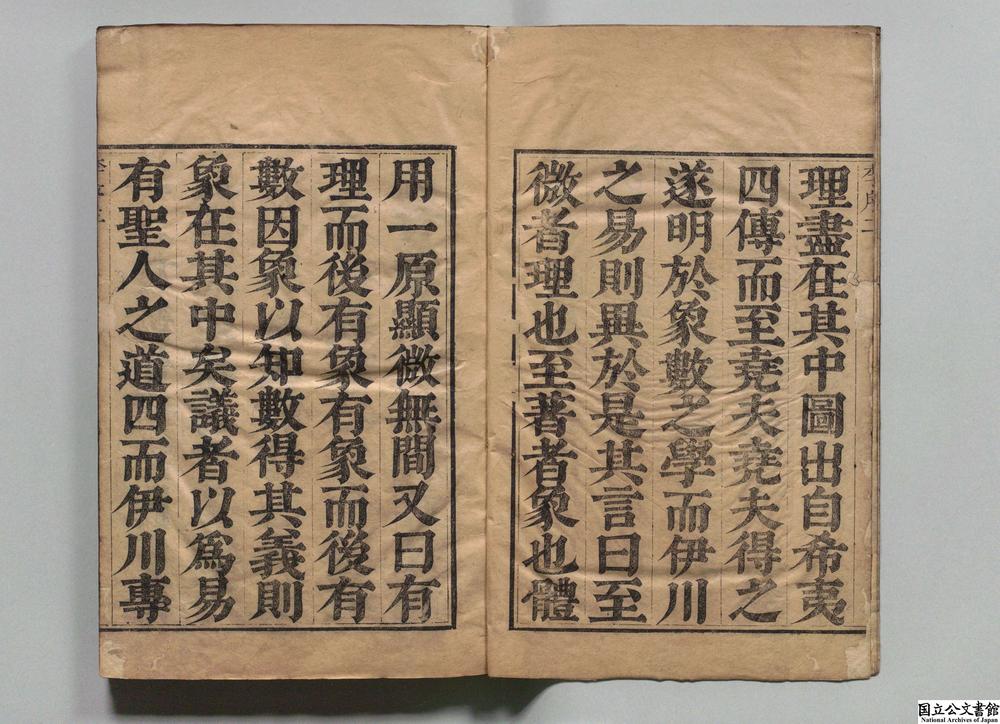 理盡在其中圖出自希夷
四傳而至堯夫堯夫得之
遂明於象數之學而伊川
之易則異於是其言曰至
微者理也至著者象也體
用一原顯微無間又曰有
理而後有象有象而後有
數因象以知數得其義則
象在其中矣議者以爲易
有聖人之道四而伊川專
国立公文書館
National Archives of Japan